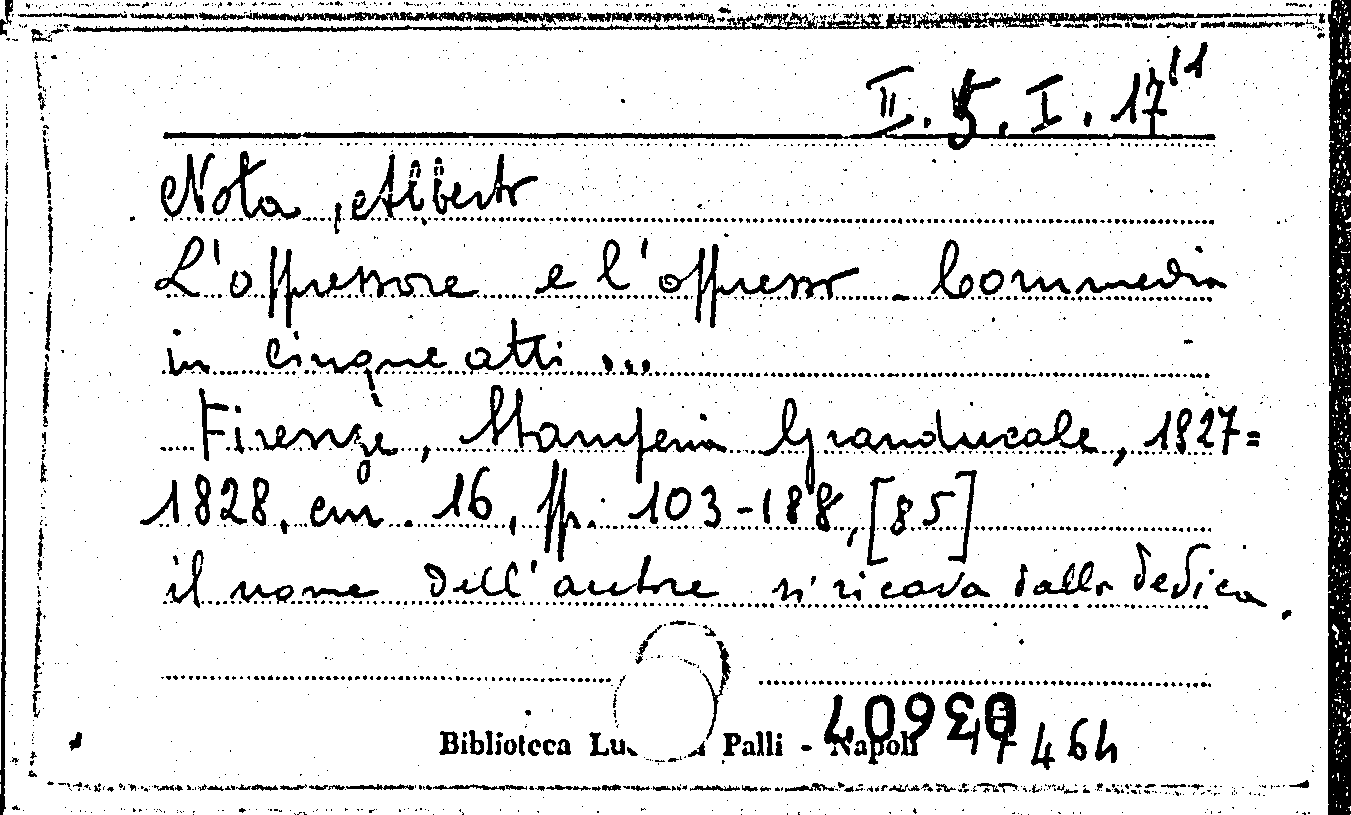 II. 5. I. 17 11
Nota, Alberto
L'oppressore e l'oppresso - Commedia
in cinque atti ...
Firenze, Stamperia Granducale, 1827=
1828, cm. 16, pp. 103-188, [85]
il nome dell'autore si ricava dalla dedica.
Biblioteca Palli - Napoli
17464